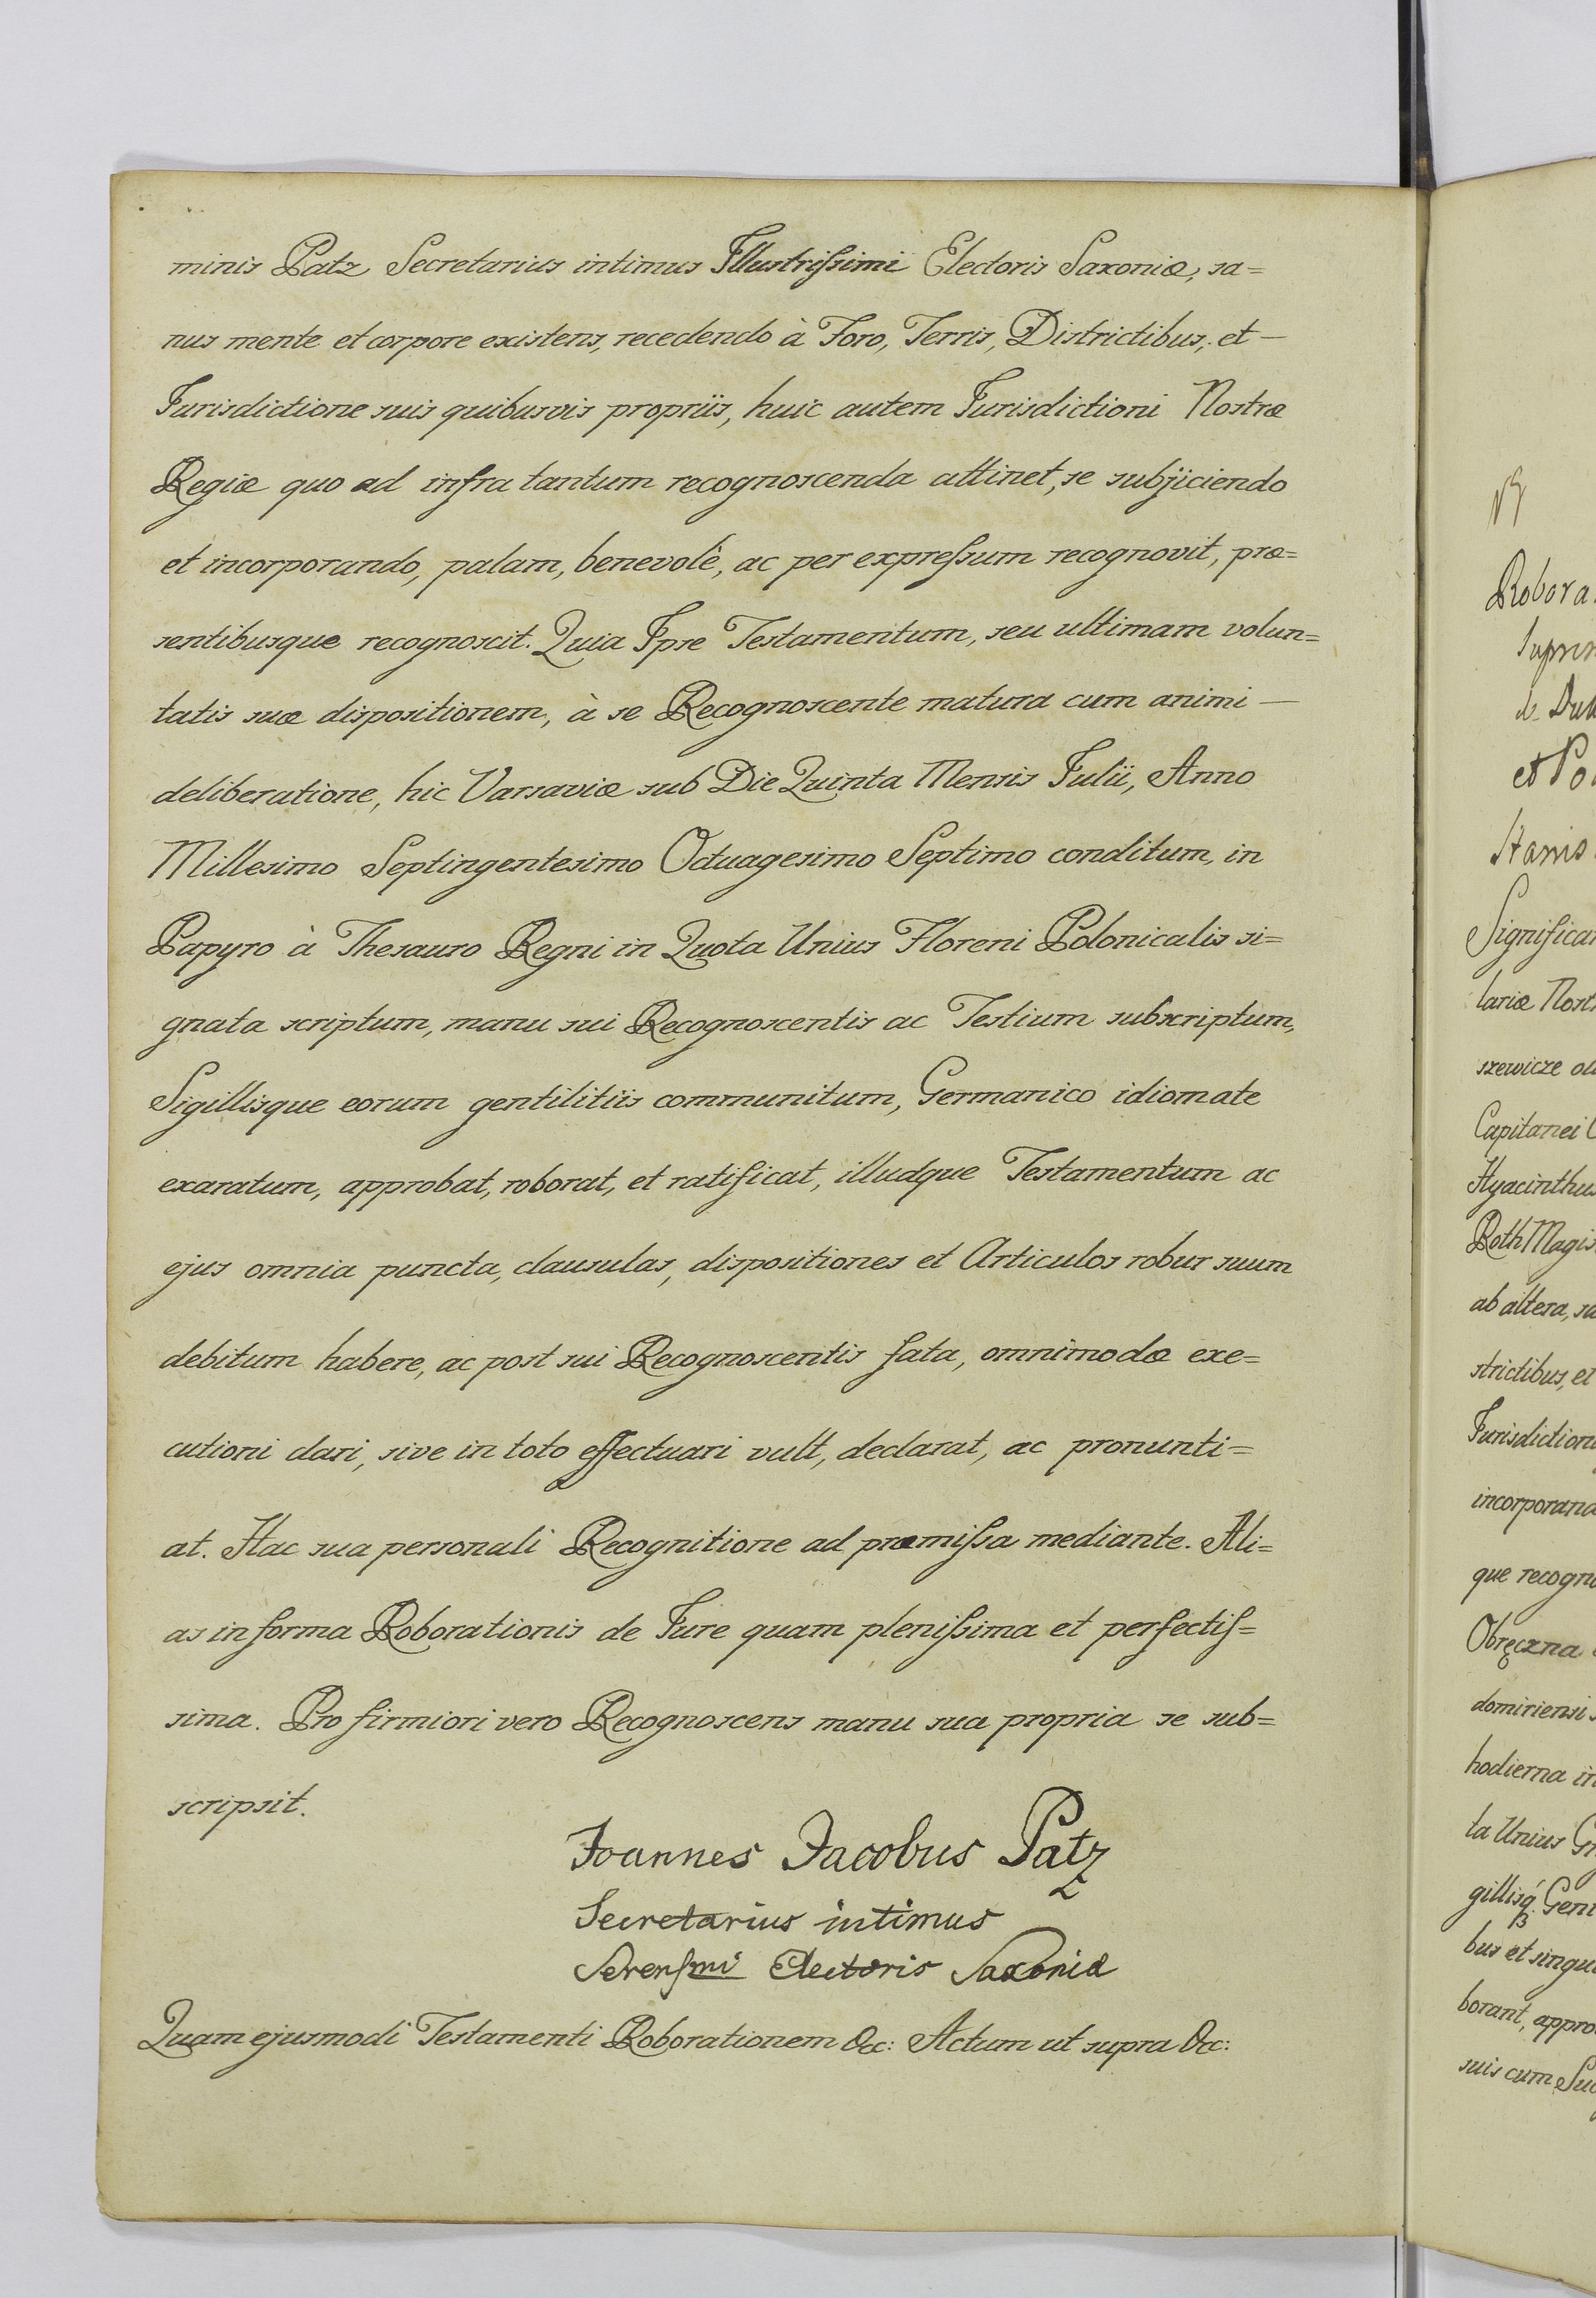 minis Patz Secretarius intimus Illustrißimi Electoris Saxoniæ, sa=
nus mente et corpore existens, recedendo à Foro, Terris, Districtibus, et —
Jurisdictione suis quibusvis propriis, huic autem Jurisdictioni Nostræ
Regiæ quo ad infra tantum recognoscenda attinet, se subjiciendo
et incorporando, palam, benevolè, ac per expreßum recognovit, præ=
sentibusque recognoscit. Quia Ipse Testamentum, seu ultimam volun=
tatis suæ dispositionem, à se Recognoscente matura cum animi —
deliberatione, hic Varsaviæ sub Die Quinta Mensis Julii, Anno
Millesimo Septingentesimo Octuagesimo Septimo conditum, in
Papyro à Thesauro Regni in Quota Unius Floreni Polonicalis si=
gnata scriptum, manu sui Recognoscentis ac Testium subscriptum,
Sigillisque eorum gentilitiis communitum, Germanico idiomate
exaratum, approbat, roborat, et ratificat, illudque Testamentum ac
ejus omnia puncta, clausulas, dispositiones et Articulos robur suum
debitum habere, ac post sui Recognoscentis fata, omnimodæ exe=
cutioni dari, sive in toto effectuari vult, declarat, ac pronunti=
at. Hac sua personali Recognitione ad præmißa mediante. Ali=
as in forma Roborationis de Jure quam plenißima et perfectis=
sima. Pro firmiori vero Recognoscens manu sua propria se sub=
scripsit.
Joannes Jacobus Patz
Secretarius intimus
Serensmi Electoris Saxonia
Quam ejusmodi Testamenti Roborationem &c: Actum ut supra &c:
Robora
Suprem
et Po
Stanis
Significa
lariæ Nost
szewicze
Capitanei
Hyacinthus
Roth Magis
ab altera, sa
strictibus, et
Jurisdiction
incorporand
que recogn
Obręczna
domiriensi
hodierna in
ta Unius G
gillisq. Gent
bus et singu
borant, appro
suis cum Suc